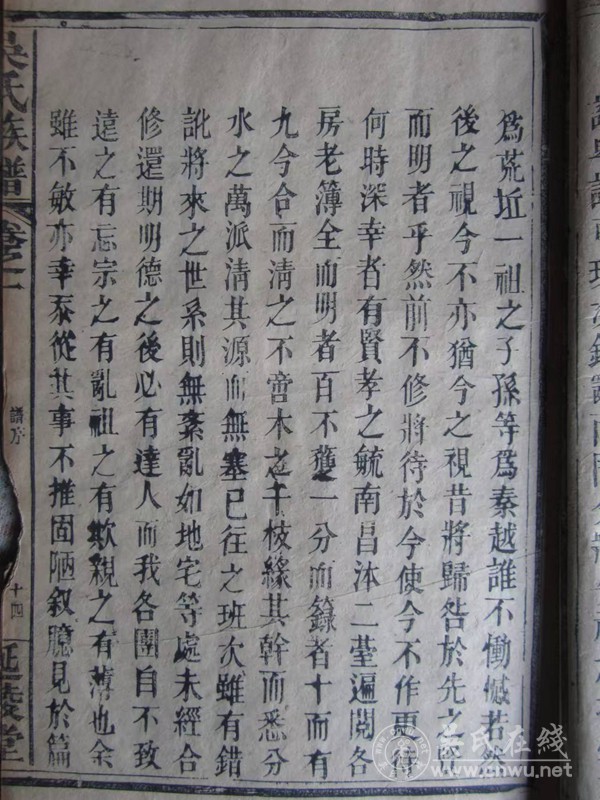 爲荒坵一祖之子孫等爲秦越誰不慟憾若然
後之視今不亦猶今之視昔將歸咎於先之
而明者乎然前不修將待於今使今不作更待
何時深幸者有賢孝之毓南昌沐二臺遍閱各
房老簿全而明者百不獲一分而錄者十而有
九今合而清之不啻木之千枝緣其幹而悉分
水之萬派淸其源而無塞已往之班次雖有錯
訛將來之世系則無紊亂如地宅等處未經合
修還期明德之後必有達人而我各團自不致
遠之有忘宗之有亂祖之有欺親之有薄也余
雖不敏亦幸忝從其事不揣固陋叙臆見於篇
吳氏族譜
卷之一
譜序
十四
延陵堂
吴氏在线
www.cnwu.net